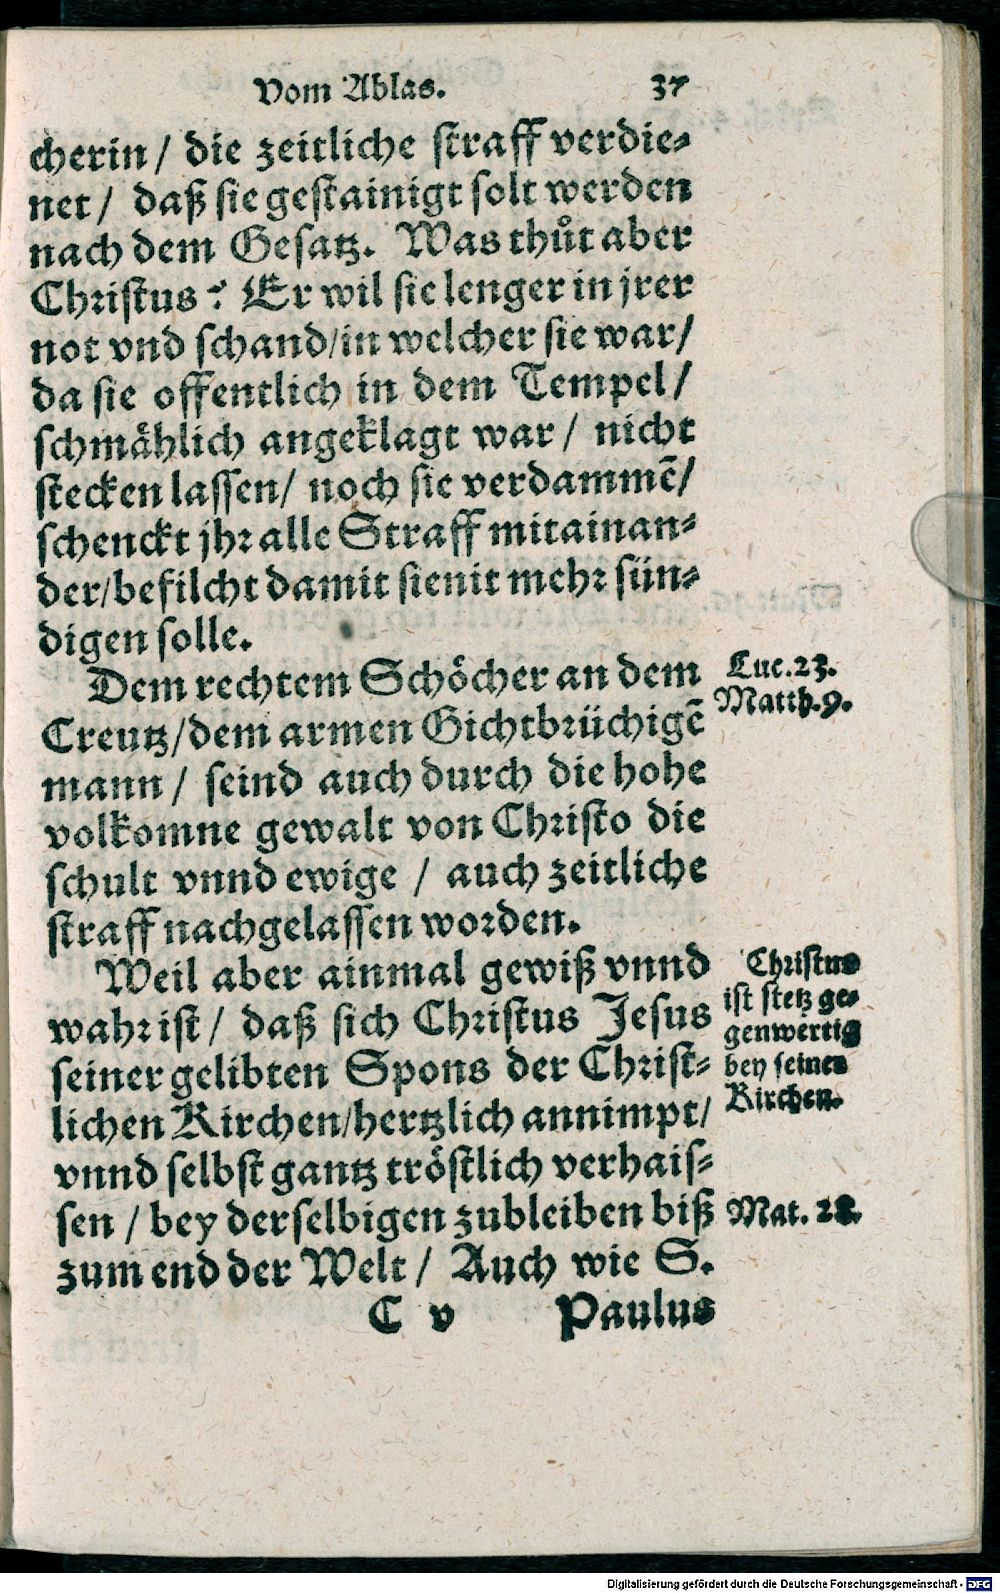 Vom Ablas. 37
cherin / die zeitliche straff verdie⸗
net / daß sie gestainigt solt werden
nach dem Gesatz. Was thůt aber
Christus? Er wil sie lenger in jrer
not vnd schand/in welcher sie war/
da sie offentlich in dem Tempel/
schmählich angeklagt war / nicht
stecken lassen/ noch sie verdammẽ/
schenckt jhr alle Straff mitainan⸗
der/befilcht damit sie nit mehr sün⸗
digen solle.
Dem rechtem Schöcher an dem
Creutz/dem armen Gichtbrüchigẽ
mann / seind auch durch die hohe
volkomne gewalt von Christo die
schult vnnd ewige / auch zeitliche
straff nachgelassen worden.
Luc.23.
Matth.9.
Weil aber ainmal gewiß vnnd
wahr ist / daß sich Christus Jesus
seiner gelibten Spons der Christ⸗
lichen Kirchen/hertzlich annimpt/
vnnd selbst gantz tröstlich verhais⸗
sen / bey derselbigen zubleiben biß
zum end der Welt / Auch wie S.
Christus
ist stetz ge⸗
genwertig
bey seiner
Kirchen.
Mat. 28.
C v Paulus
Digitalisierung gefördert durch die Deutsche Forschungsgemeinschaft - DFG